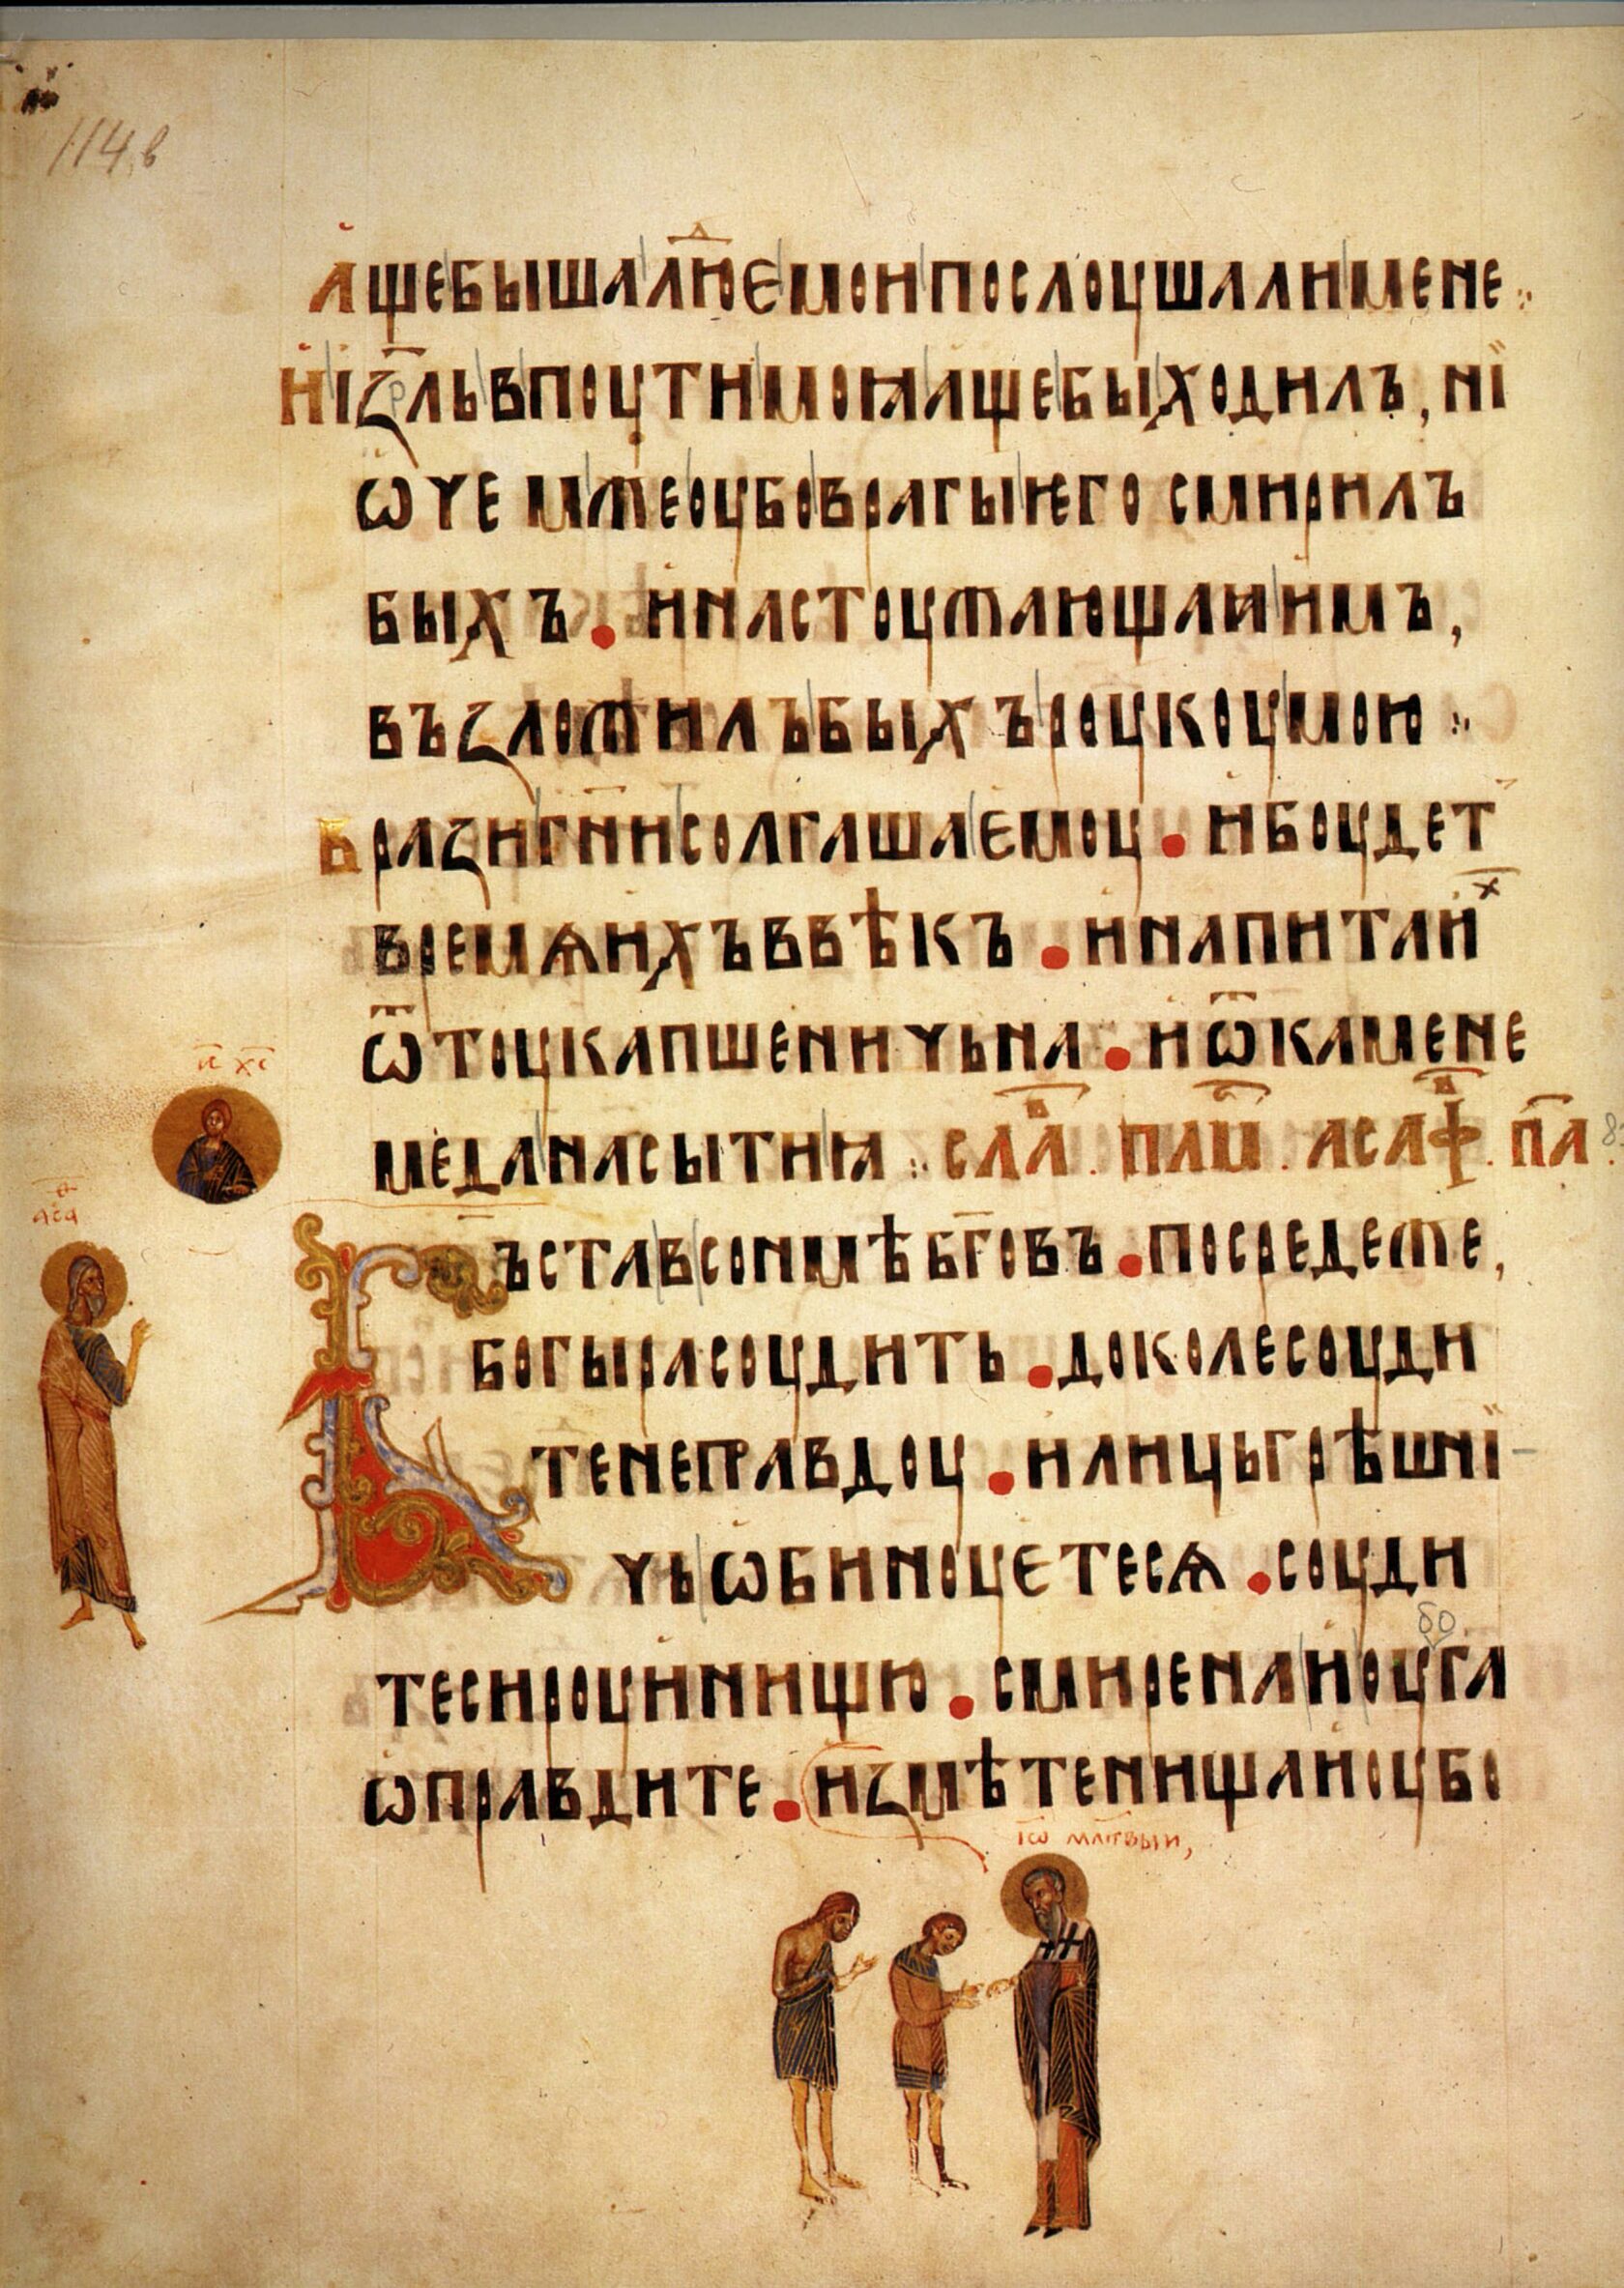 114 в
Аще быша люⷣе мои послоушали мене
И і҃зль в поути моꙗ аще бы ходилъ, ні
ѡ чемже оубо врагы ѥго смирилъ
быхъ • и на стоужающаꙗ имъ,
възложилъ быхъ роукоу мою
Врази г҃ни солгаша ємоу • и боудет
времѧ ихъ в вѣкъ • и напита иⷯ
ѿ тоука пшеничьна • и ѿ камене
меда насыти ꙗ сла҃в • п҃ам • асаф • п҃а
і҃с х҃с
аса
Бъ ста в сонмѣ б҃говъ • посредеже,
богы расоудить • доколе соуди
те неправдоу • и лицы грѣшні
чь ѡбиноуєтесѧ • соуди
те сироу и нищю • смирена и оубога
ѡправдите • измѣте нища и оубо
і҃ѡ мл҃твыи,